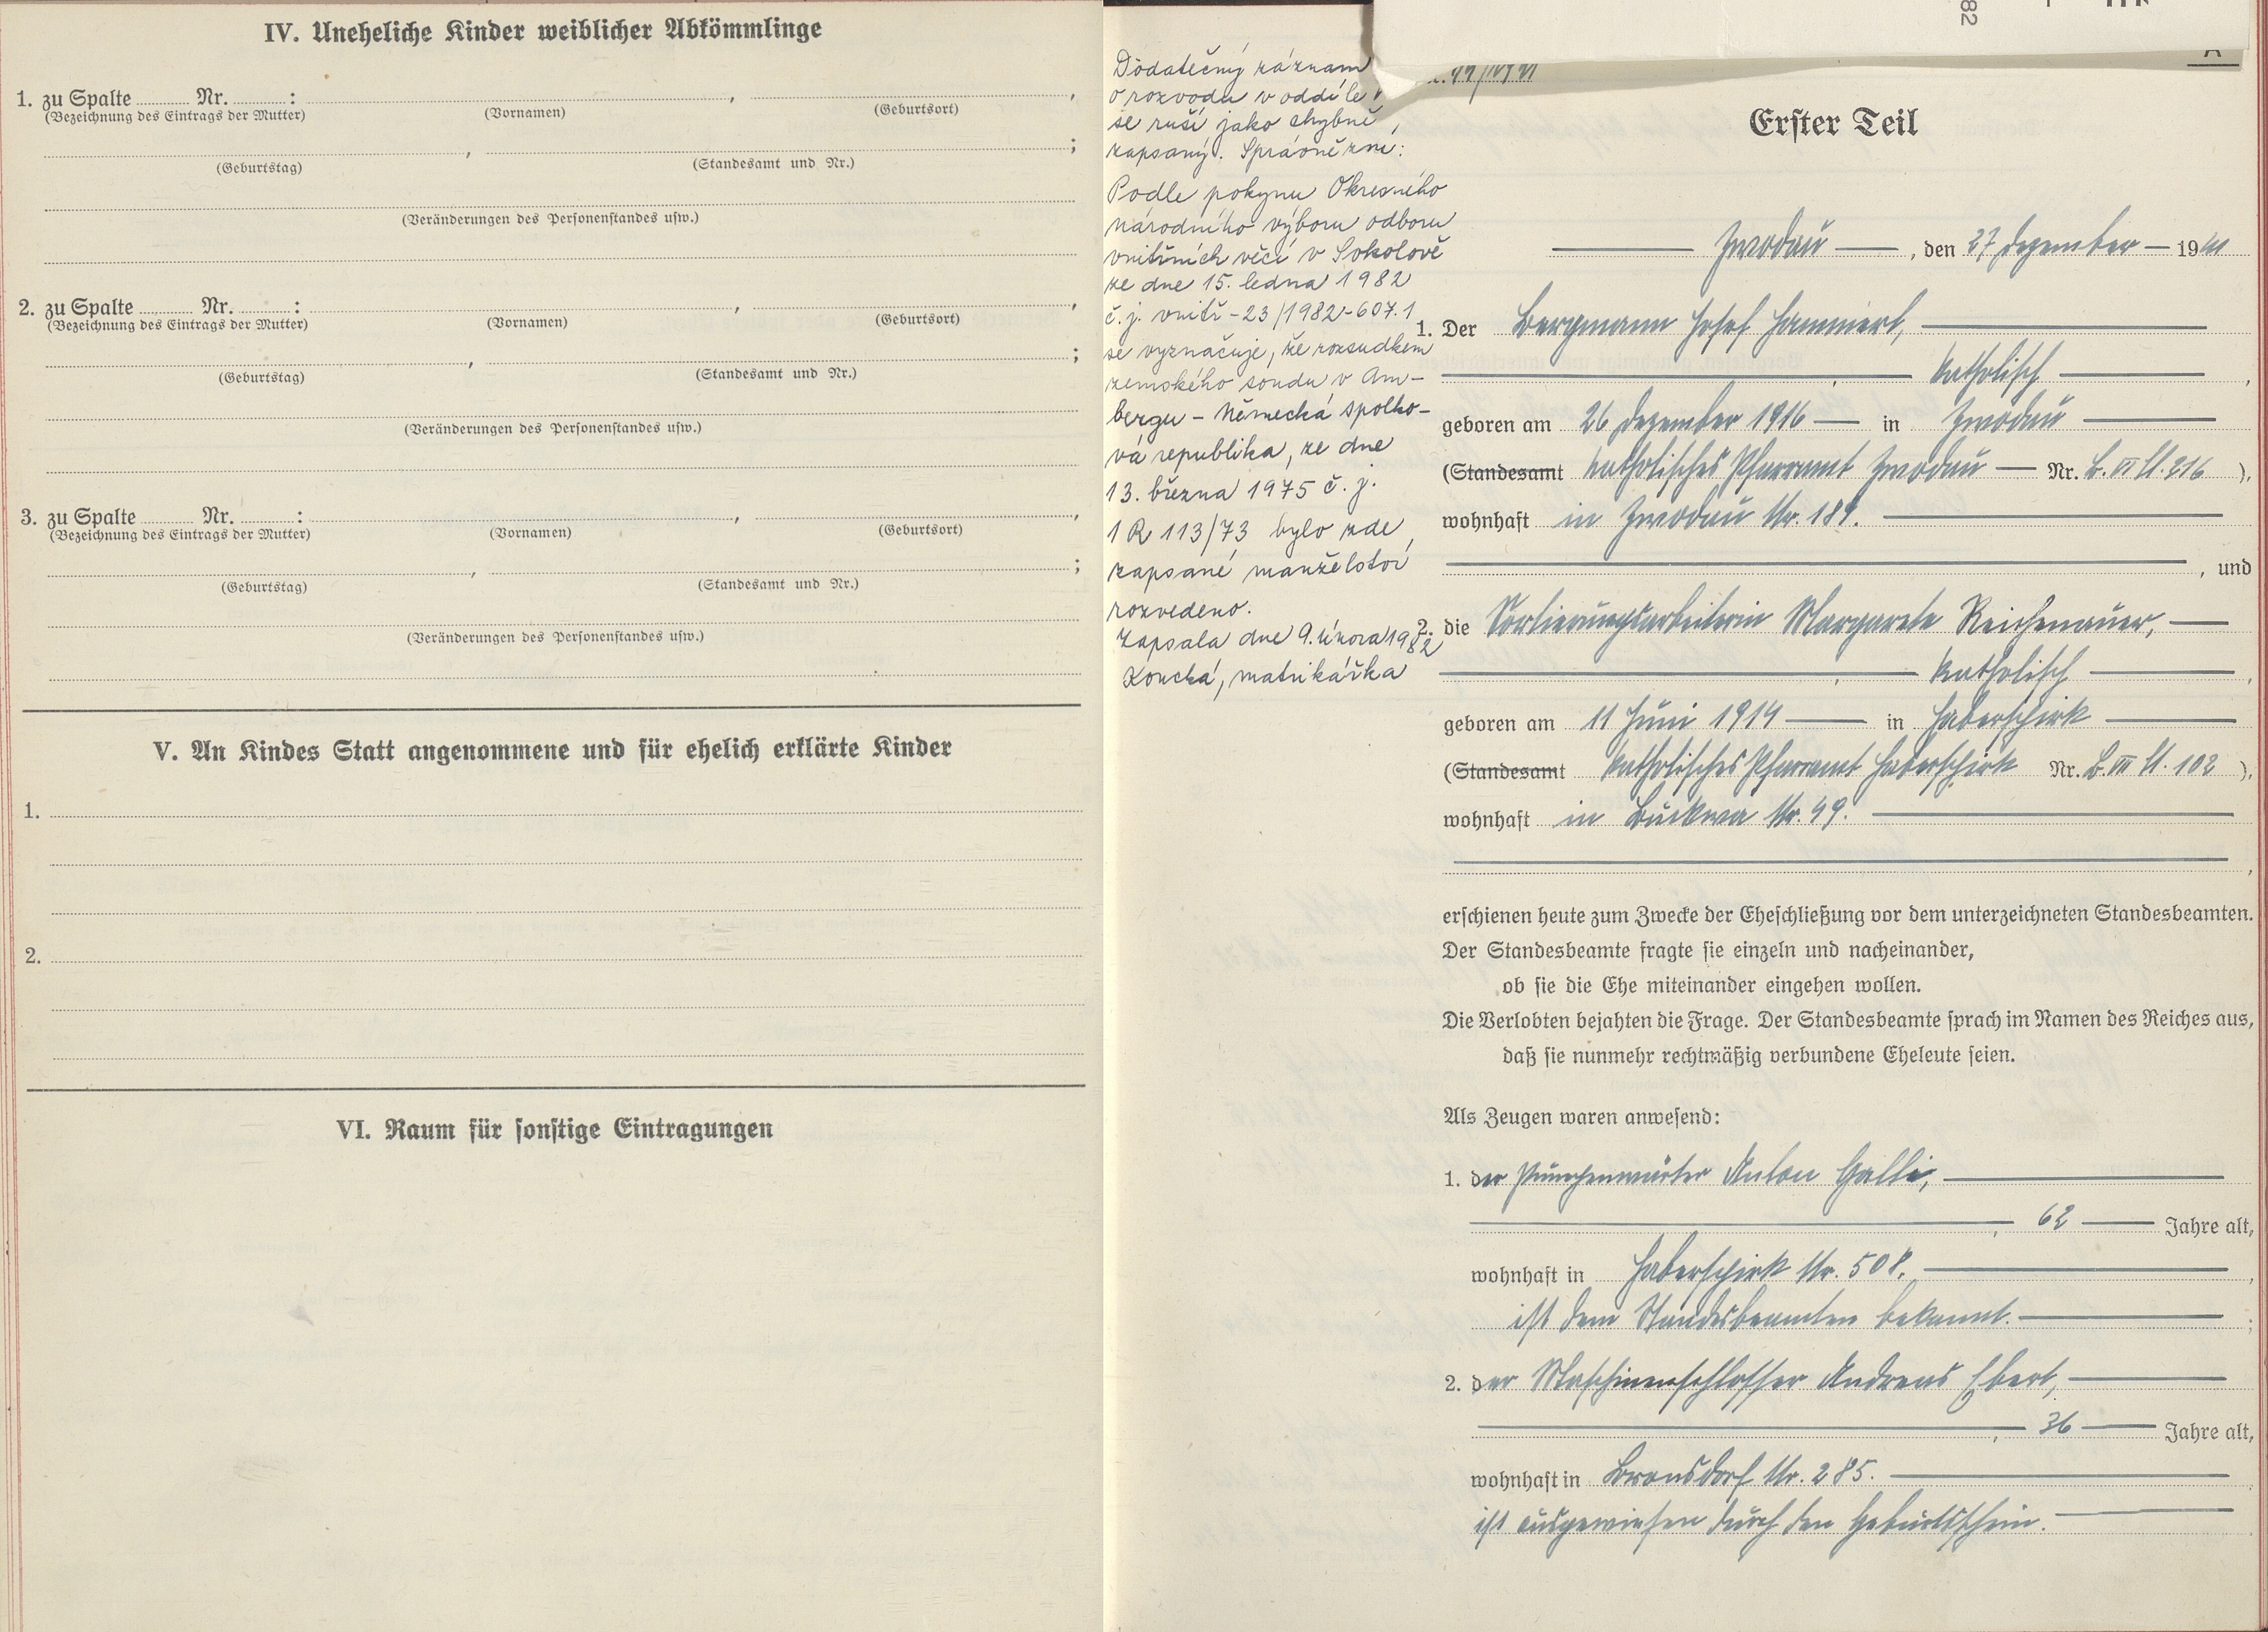 IV. Uneheliche Kinder weiblicher Abkömmlinge
1. zu Spalte Nr. : , ,
(Bezeichnung des Eintrags der Mutter) (Vornamen) (Geburtsort)
, ;
(Geburtstag) (Standesamt und Nr.)
(Veränderungen des Personenstandes usw.)
2. zu Spalte Nr. : , ,
(Bezeichnung des Eintrags der Mutter) (Vornamen) (Geburtsort)
, ;
(Geburtstag) (Standesamt und Nr.)
(Veränderungen des Personenstandes usw.)
3. zu Spalte Nr. : , ,
(Bezeichnung des Eintrags der Mutter) (Vornamen) (Geburtsort)
, ;
(Geburtstag) (Standesamt und Nr.)
(Veränderungen des Personenstandes usw.)
V. An Kindes Statt angenommene und für ehelich erklärte Kinder
1.
2.
VI. Raum für sonstige Eintragungen
Dodatečný záznam
o rozvodu v oddíle
se ruší jako chybně
zapsaný. Správně zní:
Podle pokynu Okresního
národního výboru odboru
vnitřních věcí v Sokolově
ze dne 15. ledna 1982
č.j. vnitř-23/1982-607.1
se vyznačuje, že rozsudkem
zemského soudu v Am-
bergu - Německá spolko-
vá republika, ze dne
13. března 1975 č.j.
1 R 113/73 bylo zde
zapsané manželství
rozvedeno.
Zapsala dne 9. února 1982
Koucká, matrikářka
82
A
Erster Teil
Zwodau, den 27 Dezember 1941
1. Der Bergmann Josef Hammerl,
katholisch,
geboren am 26 Dezember 1916 in Zwodau
(Standesamt katholisches Pfarramt Zwodau Nr. B. VI Bl. 216),
wohnhaft in Zwodau Nr. 189.
, und
2. die Sortierungsarbeiterin Margarete Reichenauer,
katholisch,
geboren am 11 Juni 1914 in Haberspirk
(Standesamt katholisches Pfarramt Haberspirk Nr. B. VII Bl. 102),
wohnhaft in Buckwa Nr. 49.
,
erschienen heute zum Zwecke der Eheschließung vor dem unterzeichneten Standesbeamten.
Der Standesbeamte fragte sie einzeln und nacheinander,
ob sie die Ehe miteinander eingehen wollen.
Die Verlobten bejahten die Frage. Der Standesbeamte sprach im Namen des Reiches aus,
daß sie nunmehr rechtmäßig verbundene Eheleute seien.
Als Zeugen waren anwesend:
1. der Anton Galli,
, 62 Jahre alt,
wohnhaft in Haberspirk Nr. 508,
ist dem Standesbeamten bekannt. ;
2. der Maschinenschlosser Andreas Ebert,
, 36 Jahre alt,
wohnhaft in Nr. 285.
ist ausgewiesen durch den Geburtsschein.